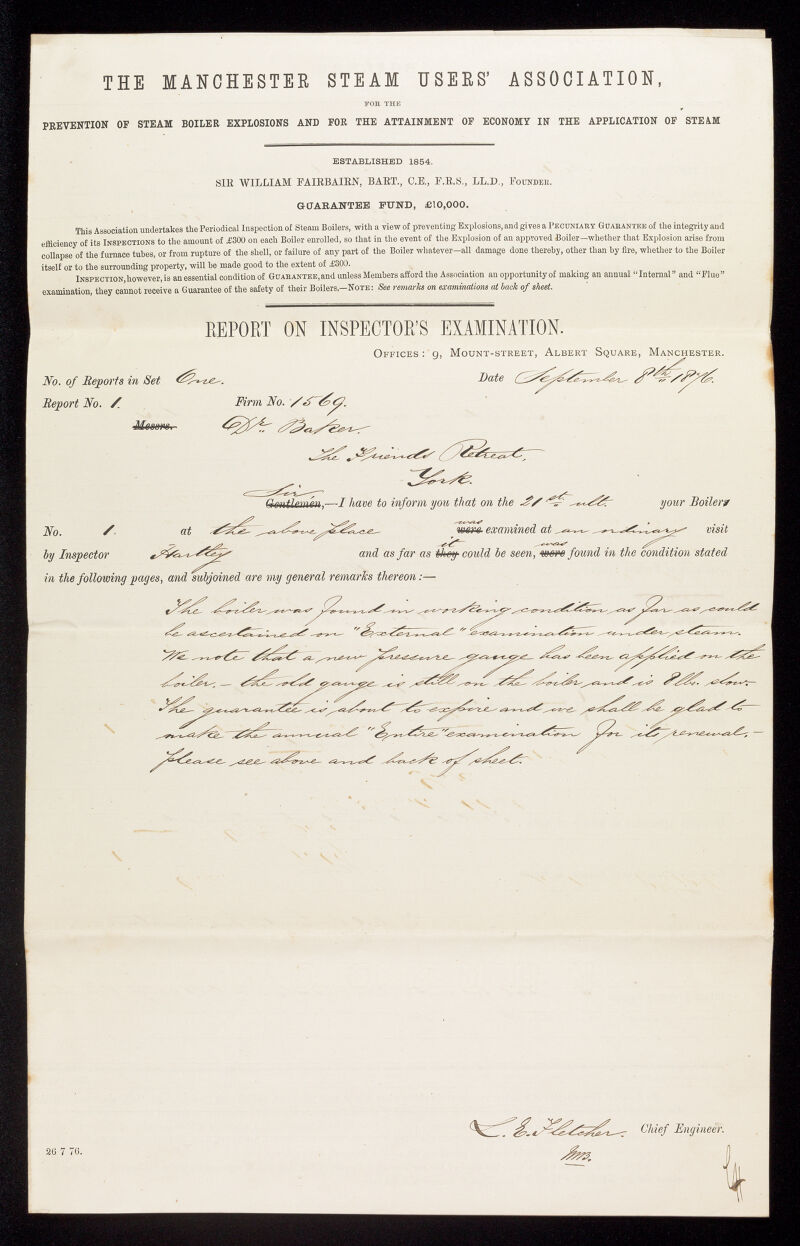 THE MANCHESTER STEAM USERS' ASSOCIATION,
FOR THE
PREVENTION OF STEAM BOILER EXPLOSIONS AND FOR THE ATTAINMENT OF ECONOMY IN THE APPLICATION OF STEAM
ESTABLISHED 1854.
SIR WILLIAM FAIRBAIRN, BART., C.E., F.R.S., LL.D., FOUNDER.
GUARANTEE FUND, £10,000.
This Association undertakes the Periodical Inspection of Steam Boilers, with a view of preventing Explosions, and gives a PECUNIARY GUARANTEE of the integrity and
efficiency of its INSPECTIONS to the amount of £300 on each Boiler enrolled, so that in the event of the Explosion of an approved Boiler—whether that Explosion arise from
collapse of the furnace tubes, or from rupture of the shell, or failure of any part of the Boiler whatever—all damage done thereby, other than by fire, whether to the Boiler
itself or to the surrounding property, will be made good to the extent of £300.
INSPECTION, however, is an essential condition of GUARANTEE, and unless Members afford the Association an opportunity of making an annual "Internal" and "Flue"
examination, they cannot receive a Guarantee of the safety of their Boilers.—NOTE: See remarks on examinations at back of sheet.
REPORT ON INSPECTOR'S EXAMINATION.
OFFICES: 9, MOUNT-STREET, ALBERT SQUARE, MANCHESTER.
No. of Reports in Set One. Date September 8th, 1876.
Report No. 1. Firm No. 1569.
Messrs. Dr. Baker.
The Friends Retreat,
York.
Sir
Gentlemen,—I have to inform you that on the 21st ult. your Boilers
No. 1. at the above place was were examined at an ordinary visit
by Inspector Hartley and as far as it they could be seen, was were found in the condition stated
in the following pages, and subjoined are my general remarks thereon:—
The boiler was found in working condition as far as could
be ascertained on "External" examination under steam.
We note that a new pressure gauge has been applied on the
boiler.— the old gauge is still on the boiler and is 8 lbs. slow.—
The guarantee is about to expire and we shall be glad to
make the annual "Entire" examination for its renewal.—
please see above and back of sheet.
L. E. Fletcher. Chief Engineer.
26 7 76.